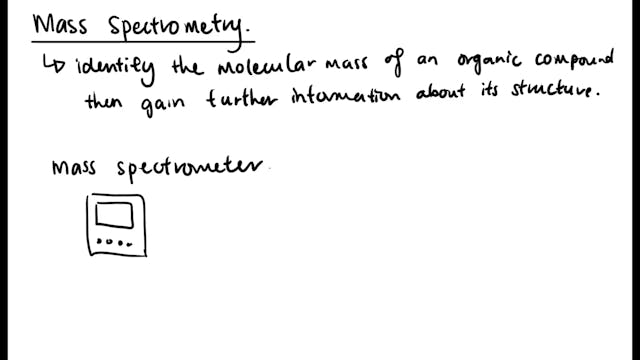 Mass Spectrometry.
↳ identify the molecular mass of an organic compound
then gain further information about its structure.
Mass spectrometer.